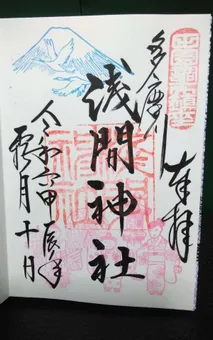 多摩川
奉拝
浅間神社
令和甲辰年
霜月十日